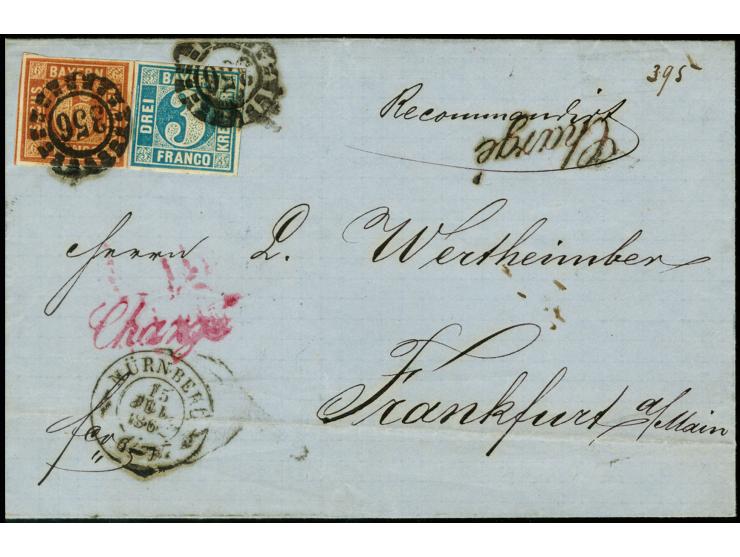 BAYERN
356
BAYERN
DREI
3
KREUZER
FRANCO
356
395
Recommandirt
Chargé
Herrn L. Wertheimber
Chargé
Frankfurt a/Main
NÜRNBERG
15
JUL
186
fco